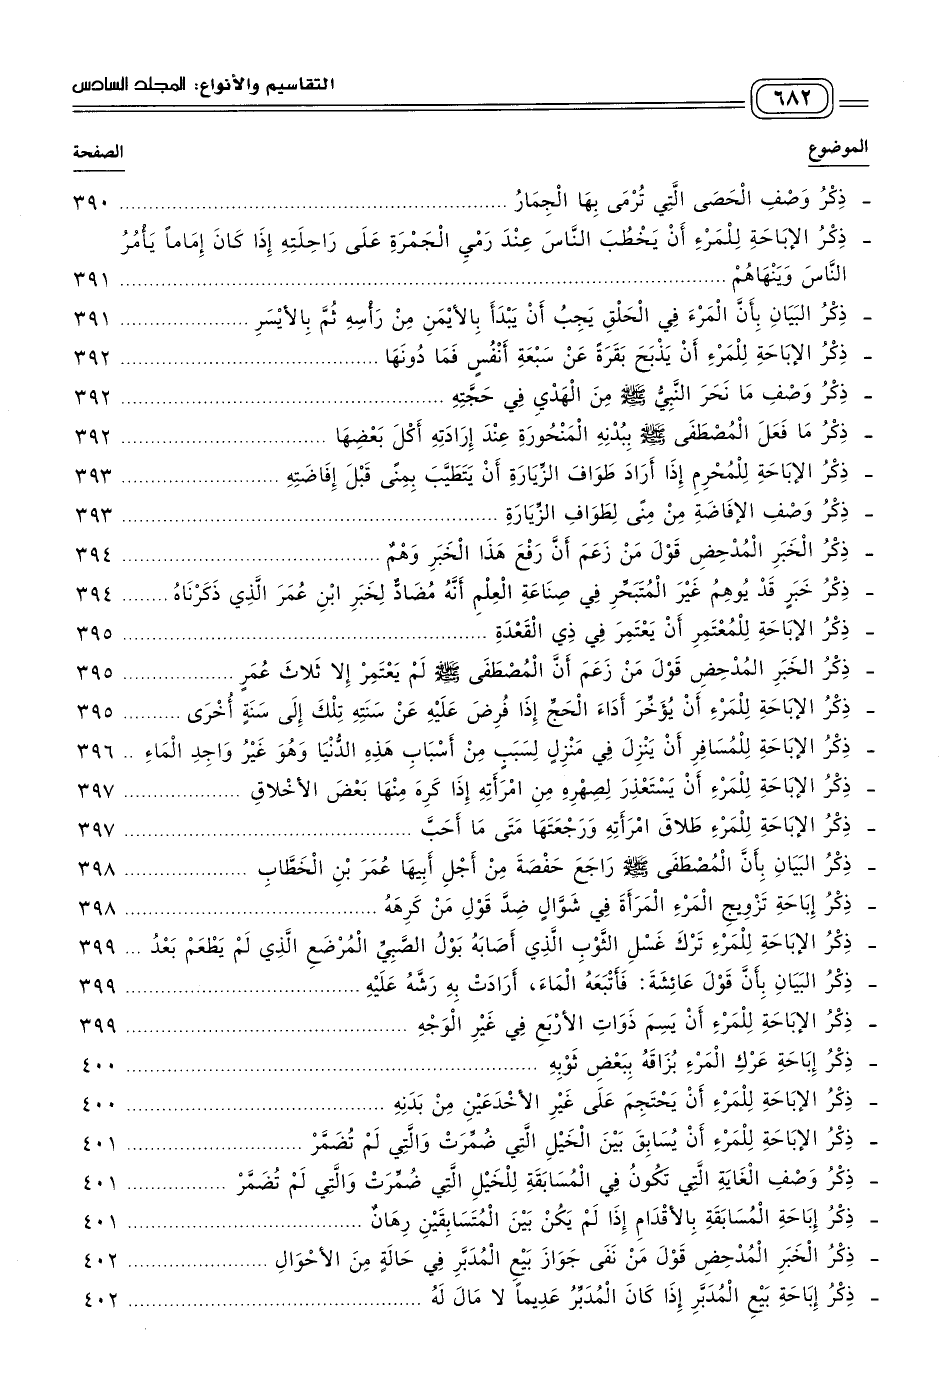 التقاسيم والأنواع: المجلد السادس
٦٨٢
الموضوع الصفحة
- ذِكْرُ وَصْفِ الْحَصَى الَّتِي تُرْمَى بِهَا الْجِمَارُ ........ ٣٩٠
- ذِكْرُ الإبَاحَةِ لِلْمَرْءِ أَنْ يَخْطُبَ النَّاسَ عِنْدَ رَمْيِ الْجَمْرَةِ عَلَى رَاحِلَتِهِ إِذَا كَانَ إِمَاماً يَأْمُرُ
النَّاسَ وَيَنْهَاهُمْ ........ ٣٩١
- ذِكْرُ البَيَانِ بِأَنَّ المَرْءَ فِي الْحَلْقِ يَجِبُ أَنْ يَبْدَأَ بِالأَيْمَنِ مِنْ رَأْسِهِ ثُمَّ بِالأَيْسَرِ ........ ٣٩١
- ذِكْرُ الإبَاحَةِ لِلْمَرْءِ أَنْ يَذْبَحَ بَقَرَةً عَنْ سَبْعَةِ أَنْفُسٍ فَمَا دُونَهَا ........ ٣٩٢
- ذِكْرُ وَصْفِ مَا نَحَرَ النَّبِيُّ ﷺ مِنَ الْهَدْيِ فِي حَجَّتِهِ ........ ٣٩٢
- ذِكْرُ مَا فَعَلَ الْمُصْطَفَى ﷺ بِبُدْنِهِ الْمَنْحُورَةِ عِنْدَ إِرَادَتِهِ أَكْلَ بَعْضِهَا ........ ٣٩٢
- ذِكْرُ الإبَاحَةِ لِلْمُحْرِمِ إِذَا أَرَادَ طَوَافَ الزِّيَارَةِ أَنْ يَتَطَيَّبَ بِمِنًى قَبْلَ إِفَاضَتِهِ ........ ٣٩٣
- ذِكْرُ وَصْفِ الإفَاضَةِ مِنْ مِنًى لِطَوَافِ الزِّيَارَةِ ........ ٣٩٣
- ذِكْرُ الْخَبَرِ الْمُدْحِضِ قَوْلَ مَنْ زَعَمَ أَنَّ رَفْعَ هَذَا الْخَبَرِ وَهْمٌ ........ ٣٩٤
- ذِكْرُ خَبَرٍ قَدْ يُوهِمُ غَيْرَ الْمُتَبَحِّرِ فِي صِنَاعَةِ الْعِلْمِ أَنَّهُ مُضَادٌّ لِخَبَرِ ابْنِ عُمَرَ الَّذِي ذَكَرْنَاهُ ........ ٣٩٤
- ذِكْرُ الإبَاحَةِ لِلْمُعْتَمِرِ أَنْ يَعْتَمِرَ فِي ذِي الْقَعْدَةِ ........ ٣٩٥
- ذِكْرُ الخَبَرِ المُدْحِضِ قَوْلَ مَنْ زَعَمَ أَنَّ الْمُصْطَفَى ﷺ لَمْ يَعْتَمِرْ إِلا ثَلاثَ عُمَرٍ ........ ٣٩٥
- ذِكْرُ الإبَاحَةِ لِلْمَرْءِ أَنْ يُؤَخِّرَ أَدَاءَ الْحَجِّ إِذَا فُرِضَ عَلَيْهِ عَنْ سَنَتِهِ تِلْكَ إِلَى سَنَةٍ أُخْرَى ........ ٣٩٥
- ذِكْرُ الإبَاحَةِ لِلْمُسَافِرِ أَنْ يَنْزِلَ فِي مَنْزِلٍ لِسَبَبٍ مِنْ أَسْبَابِ هَذِهِ الدُّنْيَا وَهُوَ غَيْرُ وَاجِدِ الْمَاءِ .. ٣٩٦
- ذِكْرُ الإبَاحَةِ لِلْمَرْءِ أَنْ يَسْتَعْذِرَ لِصِهْرِهِ مِنِ امْرَأَتِهِ إِذَا كَرِهَ مِنْهَا بَعْضَ الأخْلاقِ ........ ٣٩٧
- ذِكْرُ الإبَاحَةِ لِلْمَرْءِ طَلاقَ امْرَأَتِهِ وَرَجْعَتَهَا مَتَى مَا أَحَبَّ ........ ٣٩٧
- ذِكْرُ البَيَانِ بِأَنَّ الْمُصْطَفَى ﷺ رَاجَعَ حَفْصَةَ مِنْ أَجْلِ أَبِيهَا عُمَرَ بْنِ الْخَطَّابِ ........ ٣٩٨
- ذِكْرُ إِبَاحَةِ تَزْوِيجِ الْمَرْءِ الْمَرْأَةَ فِي شَوَّالٍ ضِدَّ قَوْلِ مَنْ كَرِهَهُ ........ ٣٩٨
- ذِكْرُ الإبَاحَةِ لِلْمَرْءِ تَرْكَ غَسْلِ الثَّوْبِ الَّذِي أَصَابَهُ بَوْلُ الصَّبِيِّ الْمُرْضَعِ الَّذِي لَمْ يَطْعَمْ بَعْدُ ... ٣٩٩
- ذِكْرُ البَيَانِ بِأَنَّ قَوْلَ عَائِشَةَ: فَأَتْبَعَهُ الْمَاءَ، أَرَادَتْ بِهِ رَشَّهُ عَلَيْهِ ........ ٣٩٩
- ذِكْرُ الإبَاحَةِ لِلْمَرْءِ أَنْ يَسِمَ ذَوَاتِ الأرْبَعِ فِي غَيْرِ الْوَجْهِ ........ ٣٩٩
- ذِكْرُ إِبَاحَةِ عَرْكِ الْمَرْءِ بُزَاقَهُ بِبَعْضِ ثَوْبِهِ ........ ٤٠٠
- ذِكْرُ الإبَاحَةِ لِلْمَرْءِ أَنْ يَحْتَجِمَ عَلَى غَيْرِ الأخْدَعَيْنِ مِنْ بَدَنِهِ ........ ٤٠٠
- ذِكْرُ الإبَاحَةِ لِلْمَرْءِ أَنْ يُسَابِقَ بَيْنَ الْخَيْلِ الَّتِي ضُمِّرَتْ وَالَّتِي لَمْ تُضَمَّرْ ........ ٤٠١
- ذِكْرُ وَصْفِ الْغَايَةِ الَّتِي تَكُونُ فِي الْمُسَابَقَةِ لِلْخَيْلِ الَّتِي ضُمِّرَتْ وَالَّتِي لَمْ تُضَمَّرْ ........ ٤٠١
- ذِكْرُ إِبَاحَةِ الْمُسَابَقَةِ بِالأقْدَامِ إِذَا لَمْ يَكُنْ بَيْنَ الْمُتَسَابِقَيْنِ رِهَانٌ ........ ٤٠١
- ذِكْرُ الْخَبَرِ الْمُدْحِضِ قَوْلَ مَنْ نَفَى جَوَازَ بَيْعِ الْمُدَبَّرِ فِي حَالَةٍ مِنَ الأحْوَالِ ........ ٤٠٢
- ذِكْرُ إِبَاحَةِ بَيْعِ الْمُدَبَّرِ إِذَا كَانَ الْمُدَبِّرُ عَدِيماً لا مَالَ لَهُ ........ ٤٠٢